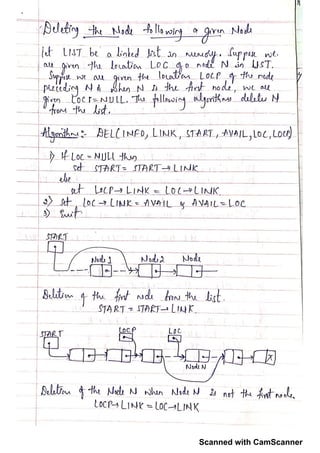 Deleting the Node following a given Node
let LIST be a linked list in memory. Suppose we
are given the location LOC of a node N in LIST.
Suppose we are given the location LOCP of the node
preceding N & when N is the first node, we are
given LOCP = NULL. The following algorithm deletes N
from the list.
Algorithm:- DEL(INFO, LINK, START, AVAIL, LOC, LOCP)
1) If LOC = NULL then
set START = START→LINK
else
set LOCP→LINK = LOC→LINK.
2) set LOC→LINK = AVAIL & AVAIL = LOC
3) Exit
START
Node 1 Node 2 Node
Deletion of the first node from the list.
START = START→LINK.
START LOCP LOC
Node N
X
Deletion of the Node N when Node N is not the first node.
LOCP→LINK = LOC→LINK
Scanned with CamScanner